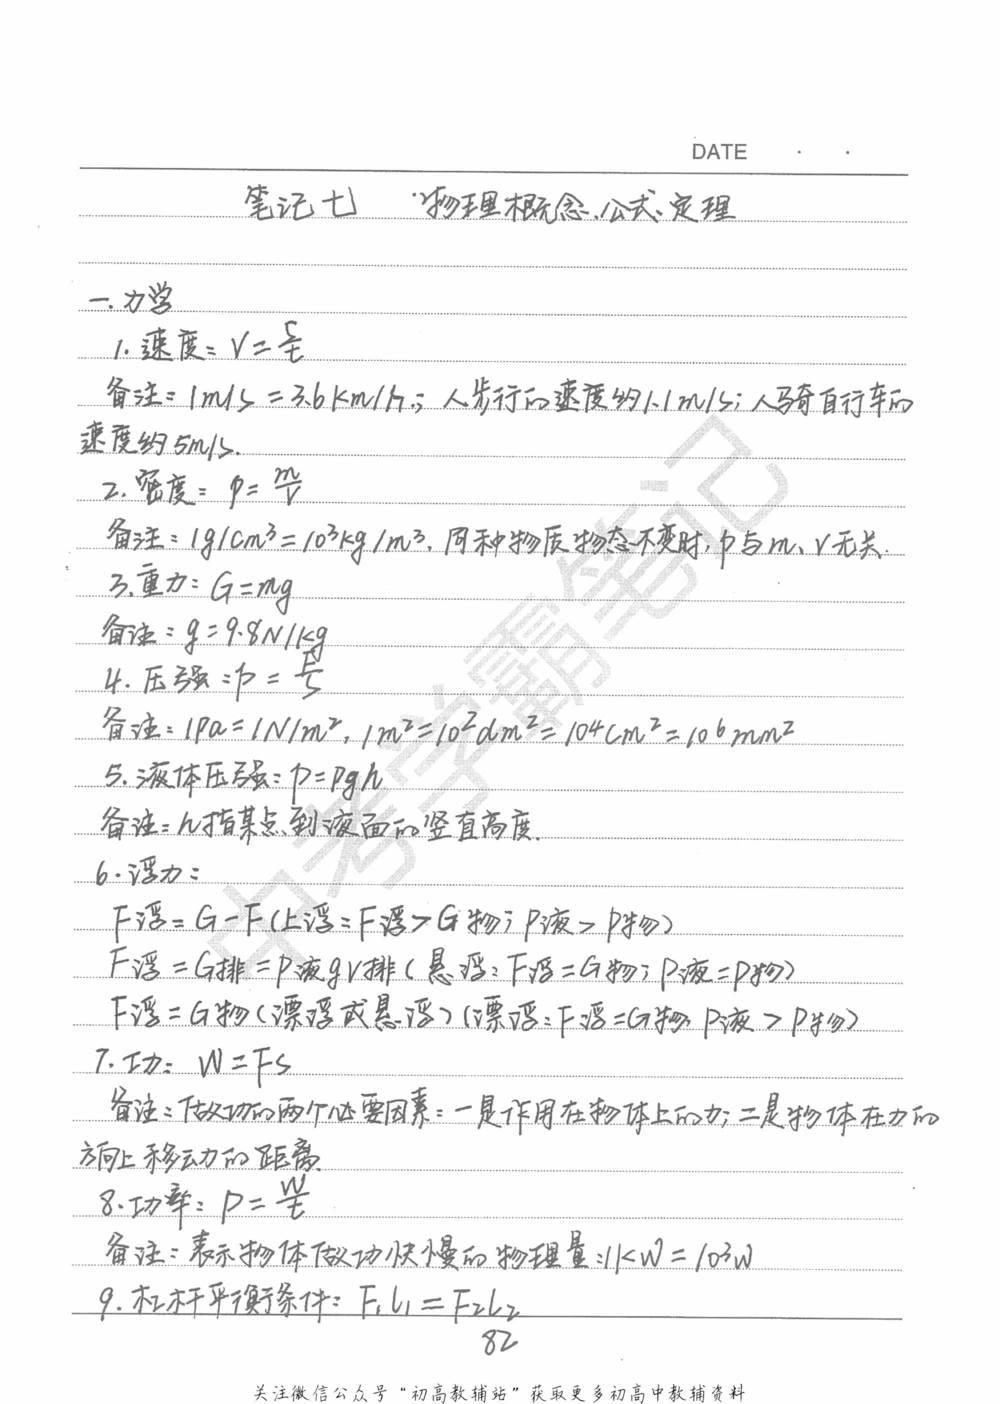 DATE · ·
笔记七 物理概念、公式、定理
一.力学
1.速度: V=S/t
备注:1m/s=3.6km/h; 人步行的速度约1.1m/s; 人骑自行车的
速度约5m/s.
2.密度: ρ=m/V
备注:1g/cm³=10³kg/m³. 同种物质物态不变时,ρ与m、V无关.
3.重力: G=mg
备注:g=9.8N/kg
4.压强:p=F/S
备注:1Pa=1N/m², 1m²=10²dm²=10⁴cm²=10⁶mm²
5.液体压强:p=ρgh
备注:h指某点到液面的竖直高度.
6.浮力:
F浮=G-F(上浮:F浮>G物;ρ液>ρ物)
F浮=G排=ρ液gV排(悬浮:F浮=G物;ρ液=ρ物)
F浮=G物(漂浮或悬浮)(漂浮:F浮=G物;ρ液>ρ物)
7.功: W=FS
备注:做功的两个必要因素:一是作用在物体上的力;二是物体在力的
方向上移动的距离.
8.功率: P=W/t
备注:表示物体做功快慢的物理量;1kW=10³W
9.杠杆平衡条件: F₁L₁=F₂L₂
82
关注微信公众号“初高教辅站”获取更多初高中教辅资料
中考学霸笔记